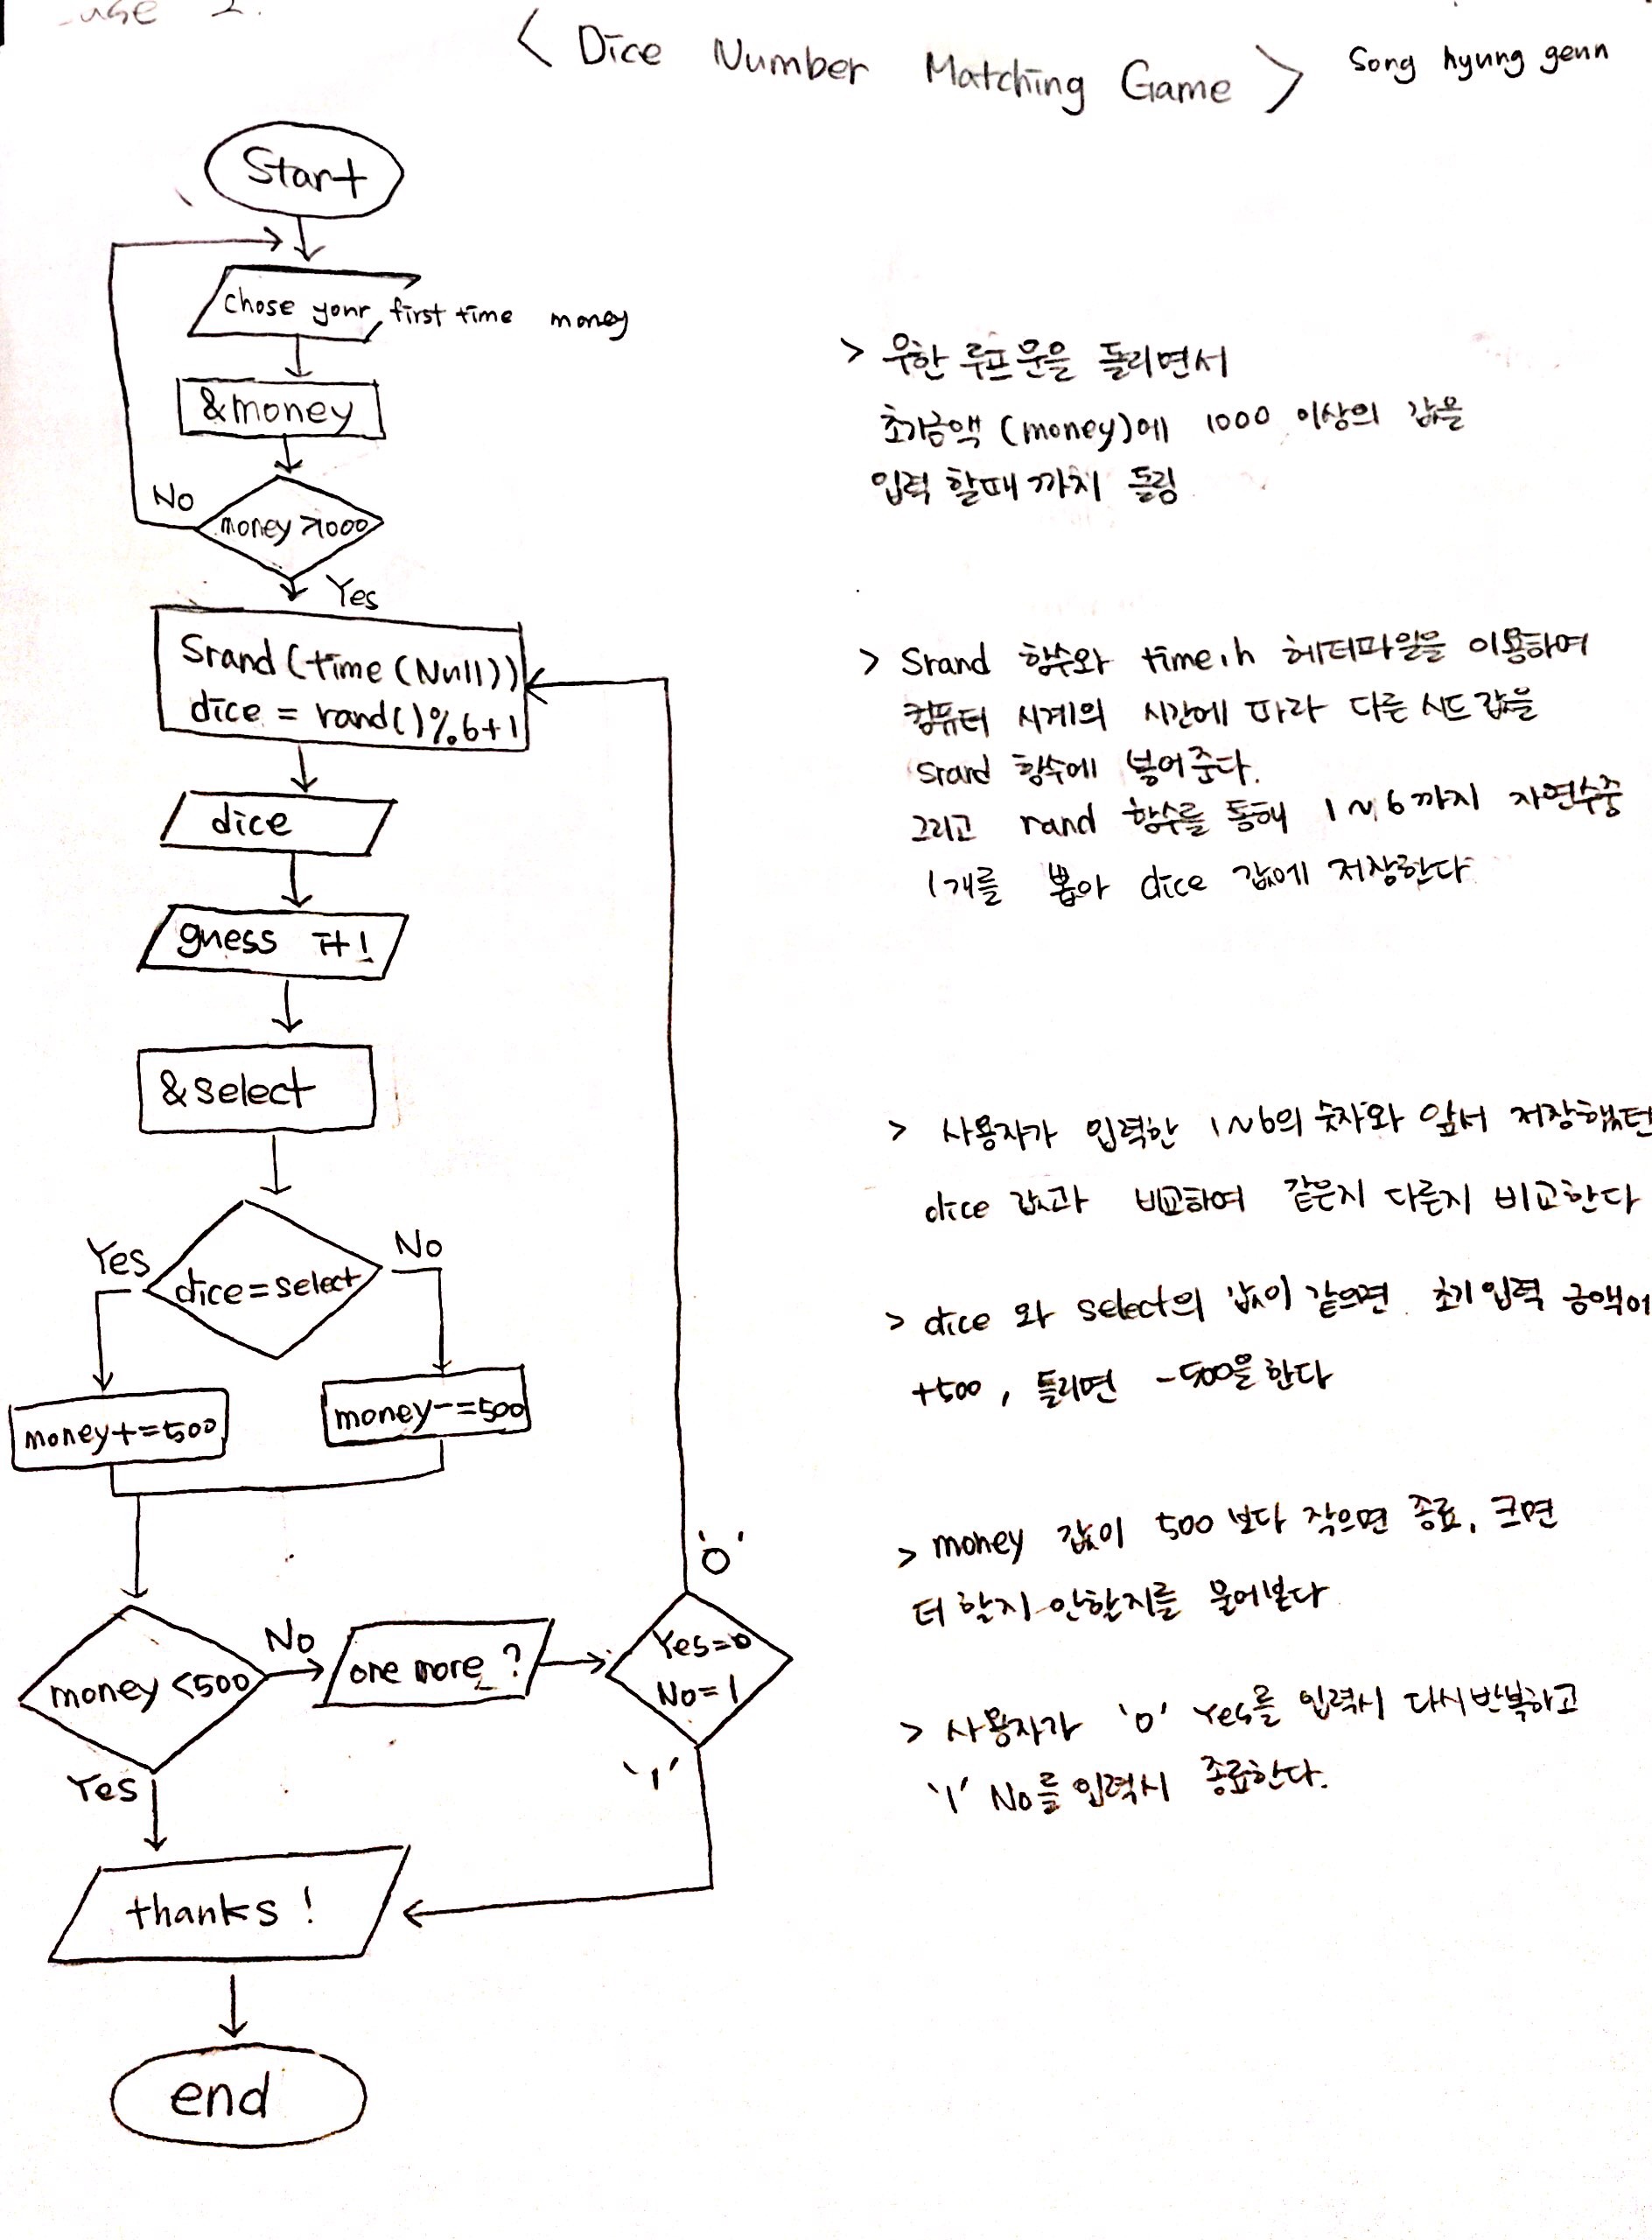 use 2.
< Dice Number Matching Game > Song hyung genn
Start
chose your first time money
&money
money >1000
No
Yes
Srand(time(Null))
dice = rand()%6+1
dice
guess 다!
&select
dice=select
Yes
No
money+=500
money-=500
money <500
No
Yes
one more ?
Yes=0
No=1
'0'
'1'
thanks !
end
> 무한 루프문을 돌리면서
초기금액 (money)에 1000 이상의 값을
입력 할때 까지 돌림
> Srand 함수와 time.h 헤더파일을 이용하여
컴퓨터 시계의 시간에 따라 다른 시드 값을
srand 함수에 넣어준다.
그리고 rand 함수를 통해 1~6까지 자연수중
1개를 뽑아 dice 값에 저장한다
> 사용자가 입력한 1~6의 숫자와 앞서 저장했던
dice 값과 비교하여 같은지 다른지 비교한다
> dice 와 select의 값이 같으면 초기 입력 금액에
+500, 틀리면 -500을 한다
> money 값이 500 보다 작으면 종료, 크면
더 할지 안할지를 물어본다
> 사용자가 '0' Yes를 입력시 다시 반복하고
'1' No를 입력시 종료한다.